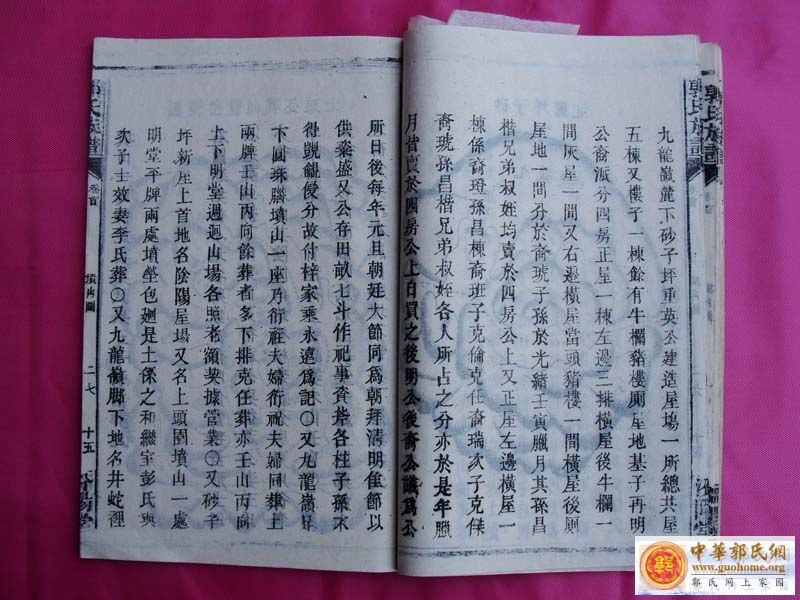 九龍嶺麓下砂子坪重英公建造屋場一所總共屋
五棟又樓子一棟餘有牛欄豬樓厠屋地基子再明
公裔派分四房正屋一棟左邊三排橫屋後牛欄一
間灰屋一間又右邊橫屋當頭豬樓一間橫屋後厠
屋地一間分於裔琥子孫於光緒壬寅臘月其孫昌
楷兄弟叔姪均賣於四房公上又正屋左邊橫屋一
棟係裔璒孫昌棟裔班子克倫克任裔瑞次子克傑
裔琥孫昌楷兄弟叔姪各人所占之分亦於是年臘
月皆賣於四房公上自買之後明公後裔公議爲公
所日後每年元旦朝廷大節同爲朝拜清明僅節以
供粢盛又公存田畝七斗作祀事資斧各柱子孫不
得覬覦侵分故付梓家乘永遠爲記〇又九龍嶺界
下圓珠腦墳山一座乃衍祖夫婦衍祝夫婦同葬上
兩牌壬山丙向餘葬者多下排克任葬亦壬山丙向
上下明堂週迴山場各照老額契據管業〇又砂子
坪新庄上首地名陰陽屋場又名上頭園墳山一處
明堂平牌兩處墳塋包廻是士傑之和繼室彭氏與
次子士效妻李氏葬〇又九龍嶺脚下地名井蛇徑
郭氏族譜
卷首
墳山圖
二七
十五
汾陽堂
郭氏族譜
中華郭氏網
www.guohome.org
郭氏网上家园